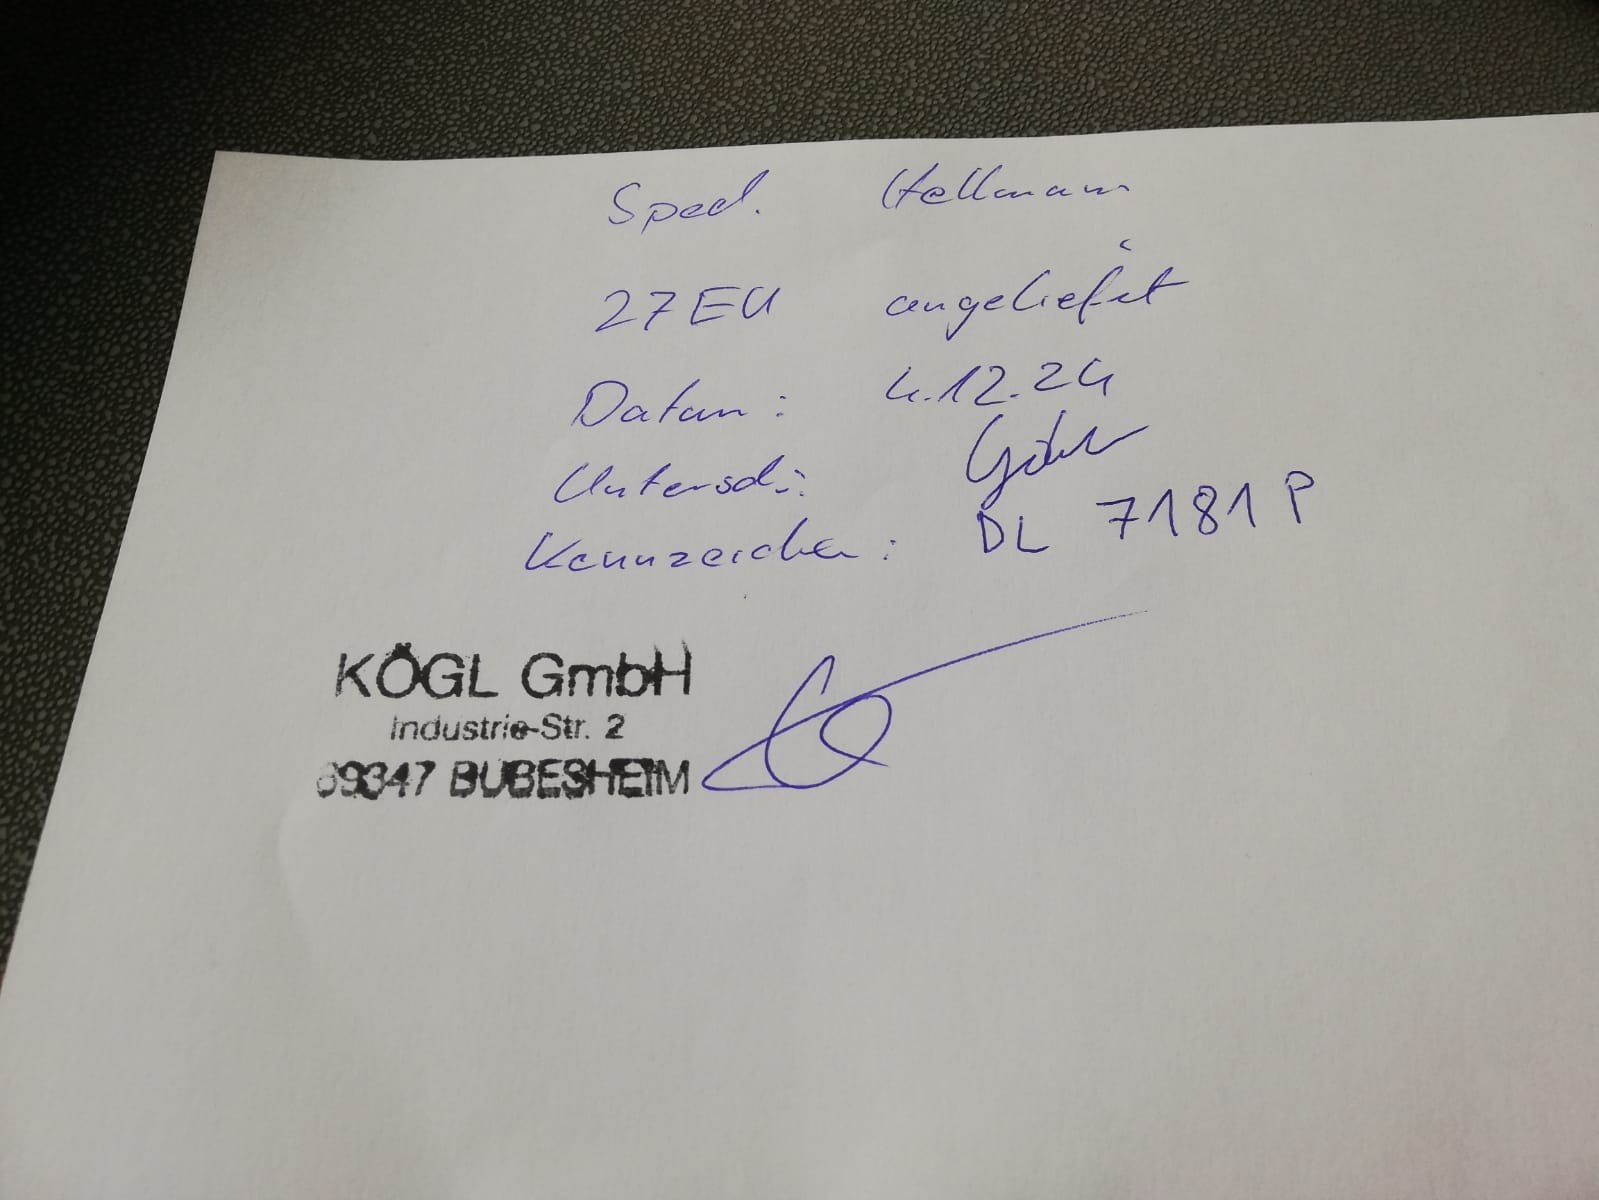 Sped. Hellmann
27 EU angeliefert
Datum: 4.12.24
Untersch.:
Kennzeichen: DL 7181 P
KÖGL GmbH
Industrie-Str. 2
89347 BUBESHEIM